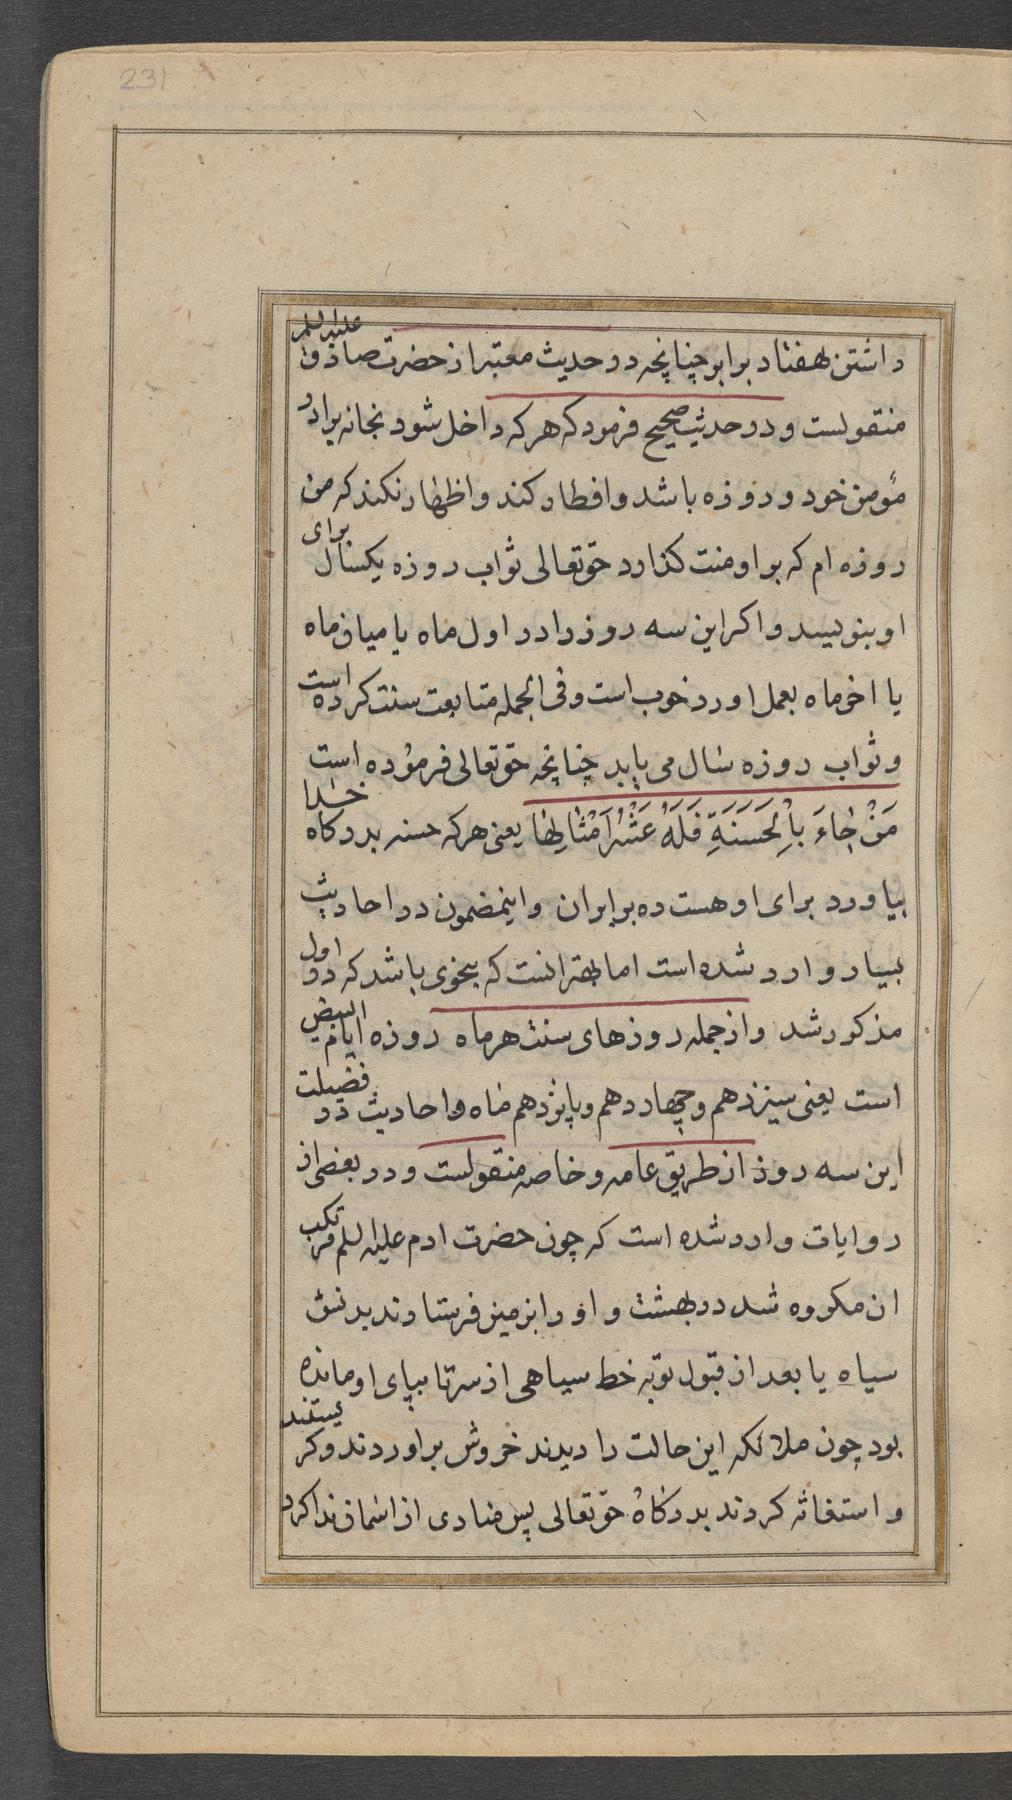 231
داشتن هفتاد برابر چنانچه در حدیث معتبر از حضرت صادق علیه السلم
منقولست و در حدیث صحیح فرمود که هر که داخل شود بخانه برادر
مؤمن خود و روزه باشد و افطار کند و اظهار نکند که من
روزه ام که بر او منت گذارد حقتعالی ثواب روزه یکسال برای
او بنویسد و اکر این سه روز را در اول ماه یا میان ماه
یا اخر ماه بعمل اورد خوب است و فی الجمله متابعت سنت کرده است
و ثواب روزه سال می یابد چنانچه حقتعالی فرموده است
مَنْ جٰاءَ بِالْحَسَنَةِ فَلَهُ عَشْرُ اَمْثٰالِهٰا یعنی هر که حسنه بدرکاه خدا
بیاورد برای او هست ده برابر ان و اینمضمون در احادیث
بسیار وارد شده است اما بهتر انست که بنحوی باشد که در اول
مذکور شد و از جمله روزهای سنت هر ماه روزه ایام البیض
است یعنی سیزدهم و چهاردهم و پانزدهم ماه و احادیث در فضیلت
این سه روز از طریق عامه و خاصه منقولست و در بعضی از
روایات وارد شده است که چون حضرت ادم علیه السلم مرتکب
ان مکروه شد در بهشت و او را بزمین فرستادند بدنش
سیاه یا بعد از قبول توبه خط سیاهی از سر تا بپای او مانده
بود چون ملائکه این حالت را دیدند خروش براوردند و کریستند
و استغاثه کردند بدرکاه حقتعالی پس منادی از اسمان ندا کرد